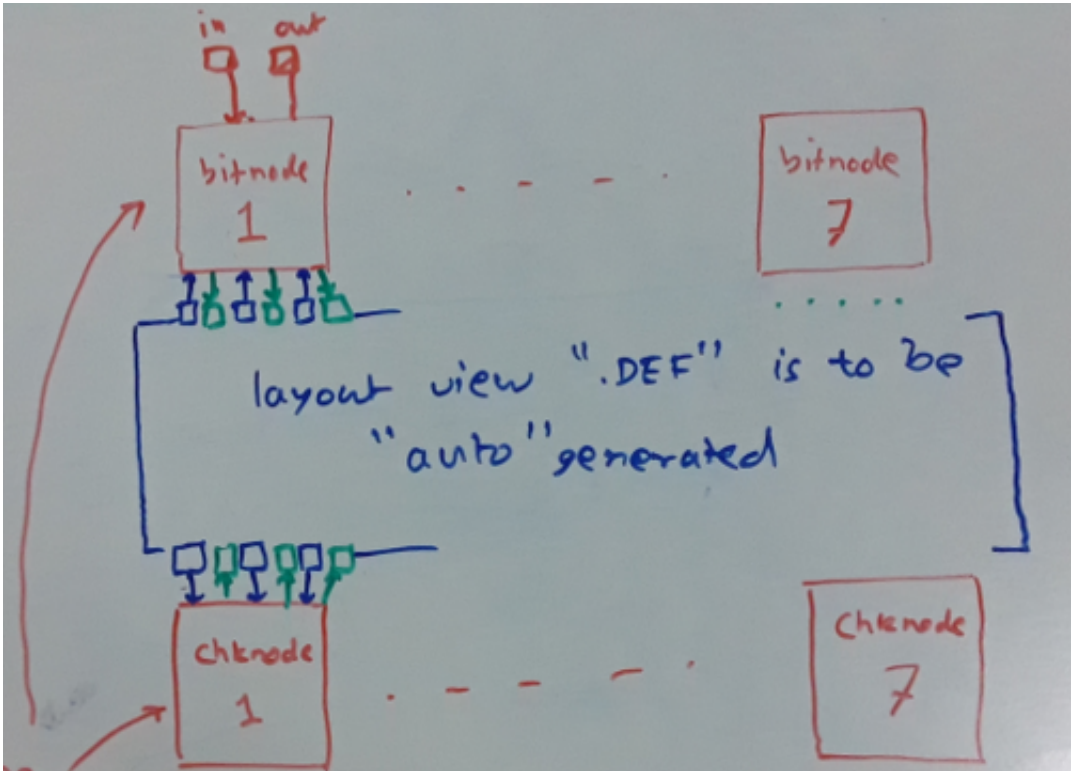 in out
bitnode
1
bitnode
7
layout view ".DEF" is to be
"auto" generated
chknode
1
chknode
7